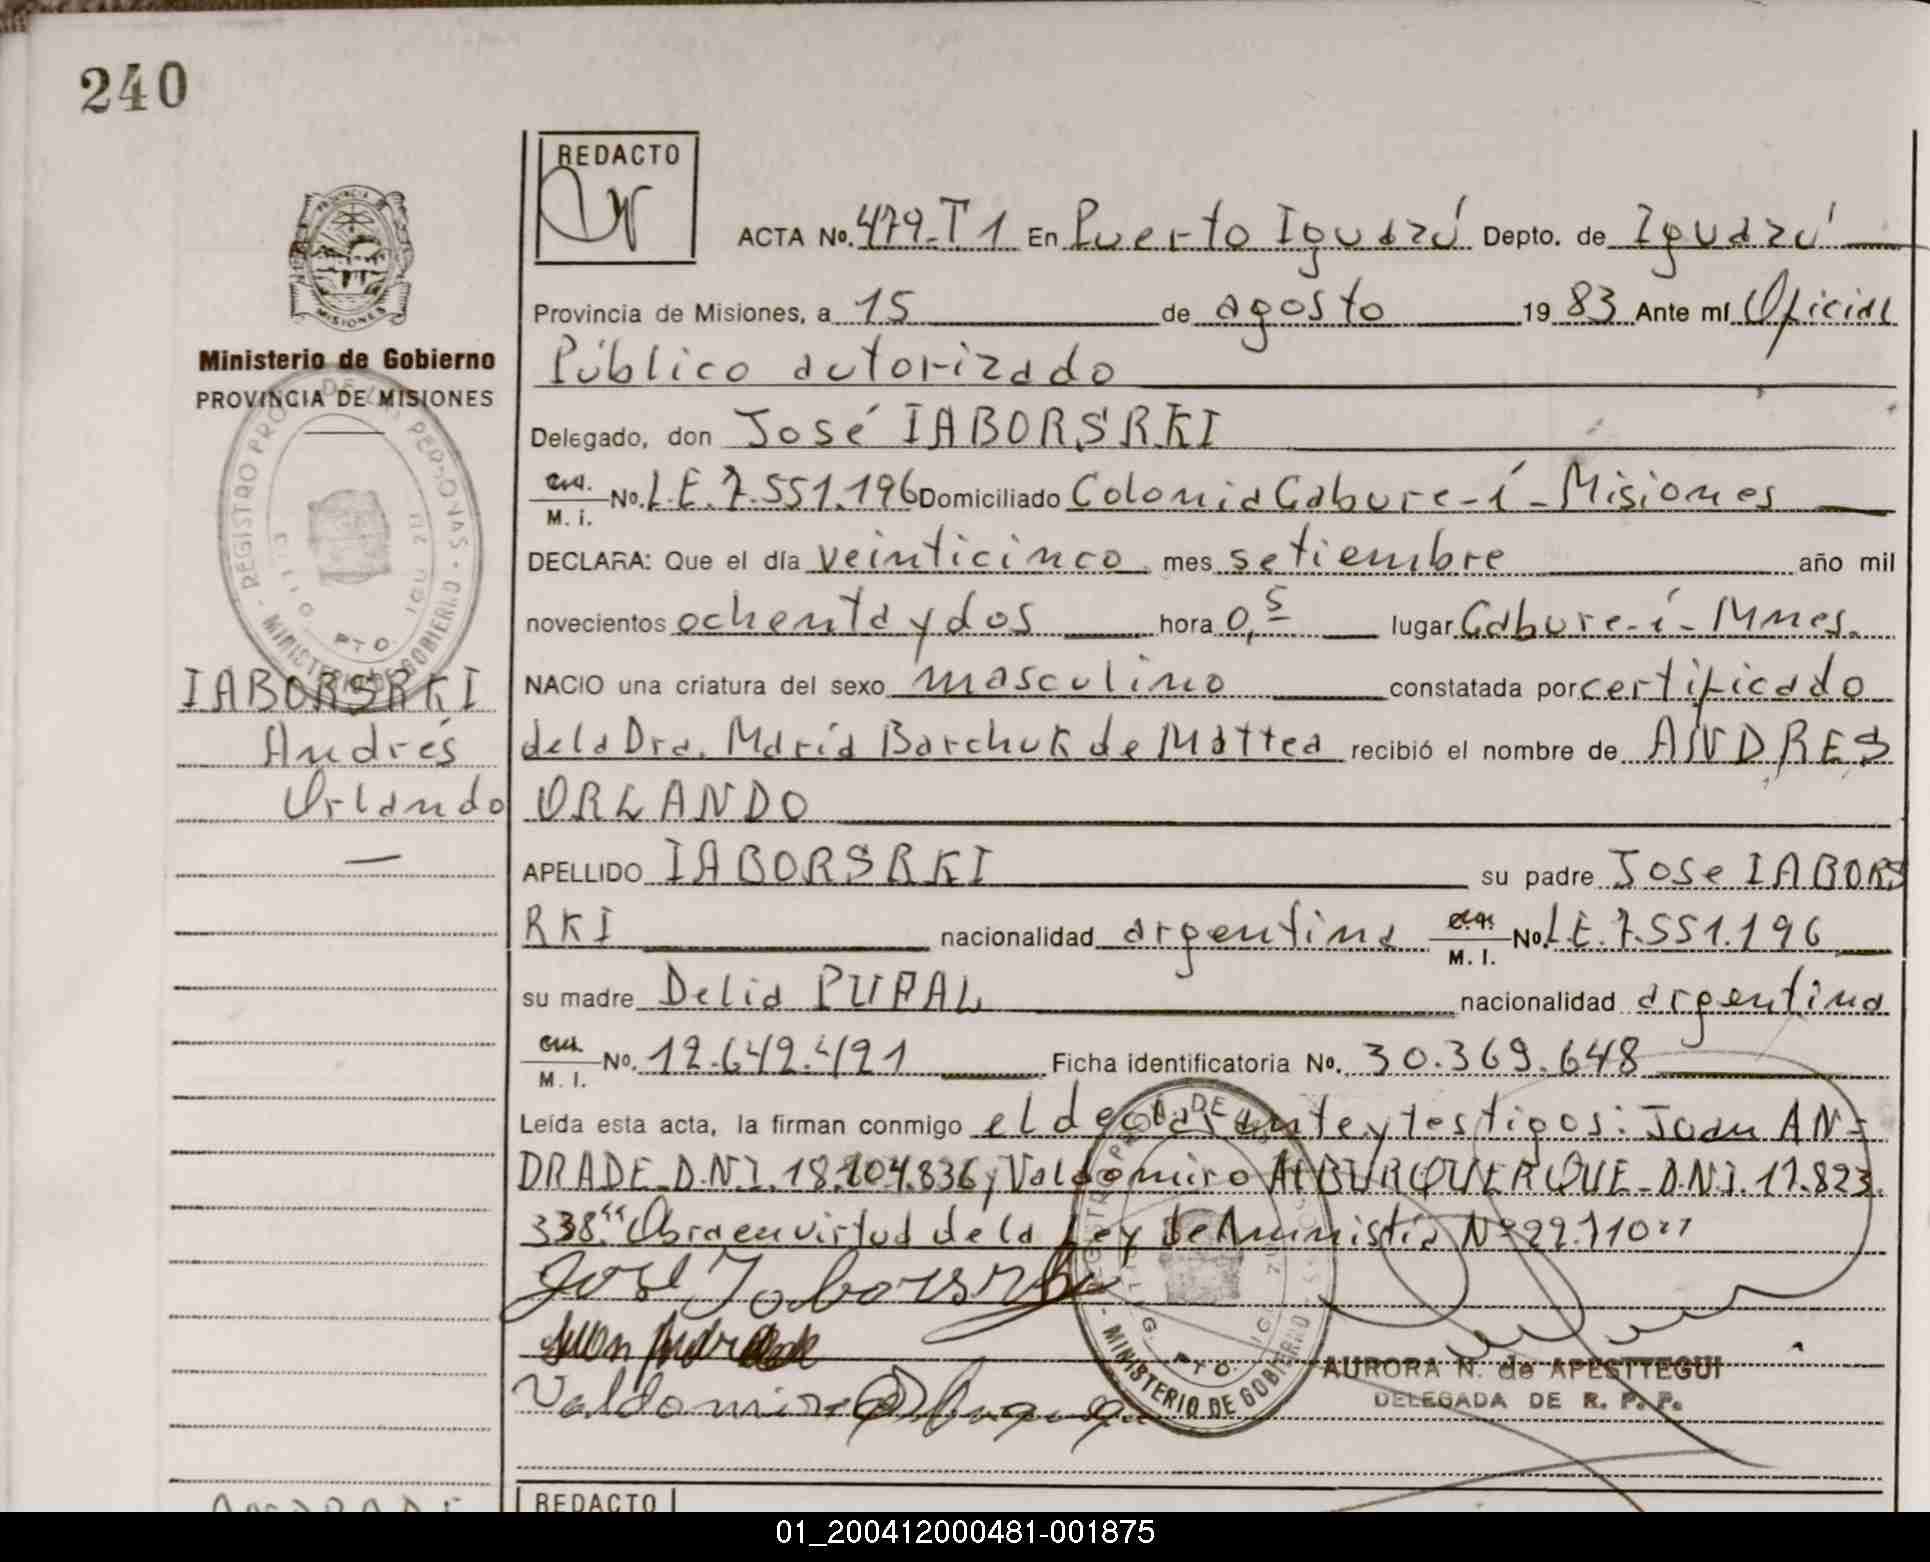 240
REDACTO
ACTA No. 479-T1 En Puerto Iguazú Depto. de Iguazú
Provincia de Misiones, a 15 de agosto 1983 Ante mí Oficial
Público autorizado
Delegado, don José IABORSRKI
M. i. No. L.E. 7.551.196 Domiciliado Colonia Cabure-í - Misiones
DECLARA: Que el día veinticinco mes setiembre año mil
novecientos ochenta y dos hora 0,5 lugar Cabure-í - Mnes.
NACIO una criatura del sexo masculino constatada por certificado
de la Dra. María Barchuk de Mattea recibió el nombre de ANDRES
ORLANDO
APELLIDO IABORSRKI su padre Jose IABORS
RKI nacionalidad argentina M. I. No. L.E. 7.551.196
su madre Delia nacionalidad argentina
M. I. No. 12.642.421 Ficha identificatoria No. 30.369.648
Leída esta acta, la firman conmigo el declarante y testigos: Juan AN-
DRADE-D.N.I. 18.104.836 y Valdomiro AlBURQUERQUE-D.N.I. 17.823.
338. "Obra en virtud de la Ley de Amnistia Nº 22.110"
José Iaborsrki
Juan Andrade
Valdomiro
AURORA N. de APESTTEGUI
DELEGADA DE R. P. P.
MISIONES
Ministerio de Gobierno
PROVINCIA DE MISIONES
REGISTRO PRO. DE LAS PERSONAS
PTO. IGUAZU
MINISTERIO DE GOBIERNO
IABORSRKI
Andrés
Orlando
MINISTERIO DE GOBIERNO
PTO.
REDACTO
01_200412000481-001875